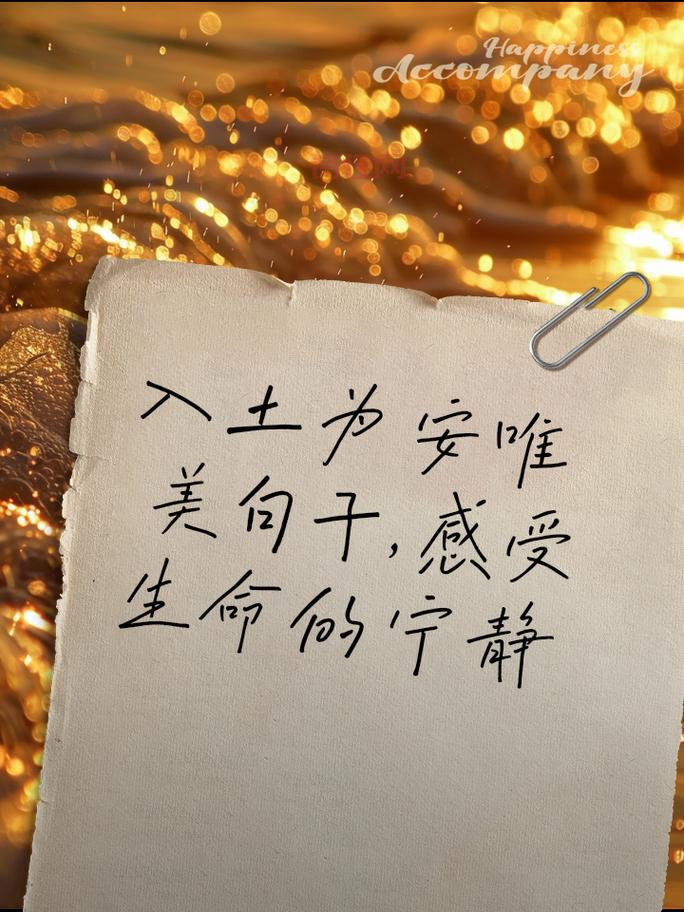 Happiness
Accompany
入土为安唯
美句子,感受
生命的宁静